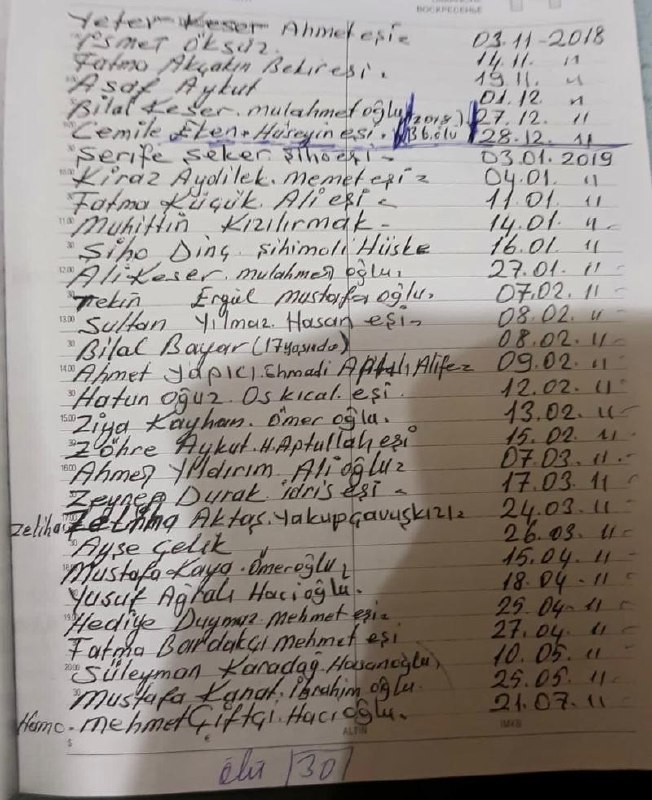 ВОСКРЕСЕНЬЕ
Yeter Keser Ahmet eşi 03.11-2018
İsmet Öksüz. 14.11. 11
Fatma Akçakın Bekir eşi. 19.11. 11
Asaf Aykut 01.12 11
Bilal Keser. mulahmet oğlu (2018) 27.12. 11
Cemile Eken. Hüseyin eşi. 36.ölü 28.12. 11
Şerife Şeker Şıhoeşi - 03.01.2019
Kiraz Aydilek. Memet eşi 04.01. 11
Fatma Küçük. Ali eşi 11.01. 11
Muhittin Kızılırmak - 14.01. 11
Şıho Dinç. Şihimoli Hüske 16.01 11
Ali Keser. mulahmet oğlu. 27.01. 11
Tekin Ergül Mustafa oğlu. 07.02. 11
Sultan Yılmaz. Hasan eşi 08.02. 11
Bilal Bayar (17 yaşında) 08.02. 11
Ahmet Yapıcı. Ehmadi Alife 09.02. 11
Hatun Oğuz. Oskical. eşi 12.02. 11
Ziya Kayhan. Ömer oğlu. 13.02. 11
Zöhre Aykut. H.Aptullah eşi 15.02. 11
Ahmet Yıldırım Ali oğlu 07.03. 11
Zeynep Durak. idris eşi 17.03 11
Zeliha Aktaş. Yakup çavuş kızı 24.03. 11
Ayşe Çelik 26.03. 11
Mustafa Kaya. Ömeroğlu 15.04. 11
Yusuf Ağralı Hacıoğlu. 18.04 - 11
Hediye Duymaz Mehmet eşi 25.04- 11
Fatma Bardakçı Mehmet eşi 27.04. 11
Süleyman Karadağ. Hasanoğlu, 10.05. 11
Mustafa Kanat. İbrahim oğlu. 25.05. 11
Hamo - Mehmet Çiftçi. Hacıoğlu. 21.07. 11
ölü 30